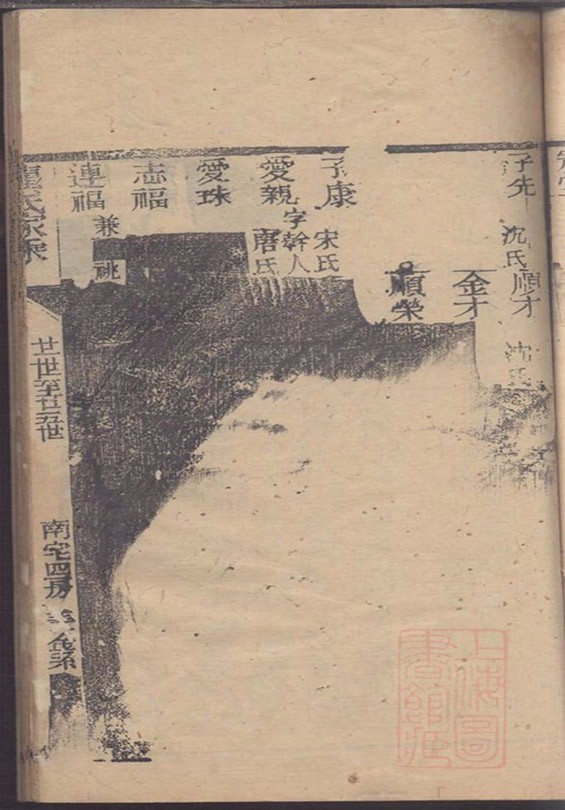 子先 沈氏
順才 沈氏
金才
順榮
子康 宋氏
愛親 字幹人 唐氏
愛珠
志福
連福 兼祧
氏家乘
廿世至廿五世
南宅四房
上海圖書館藏